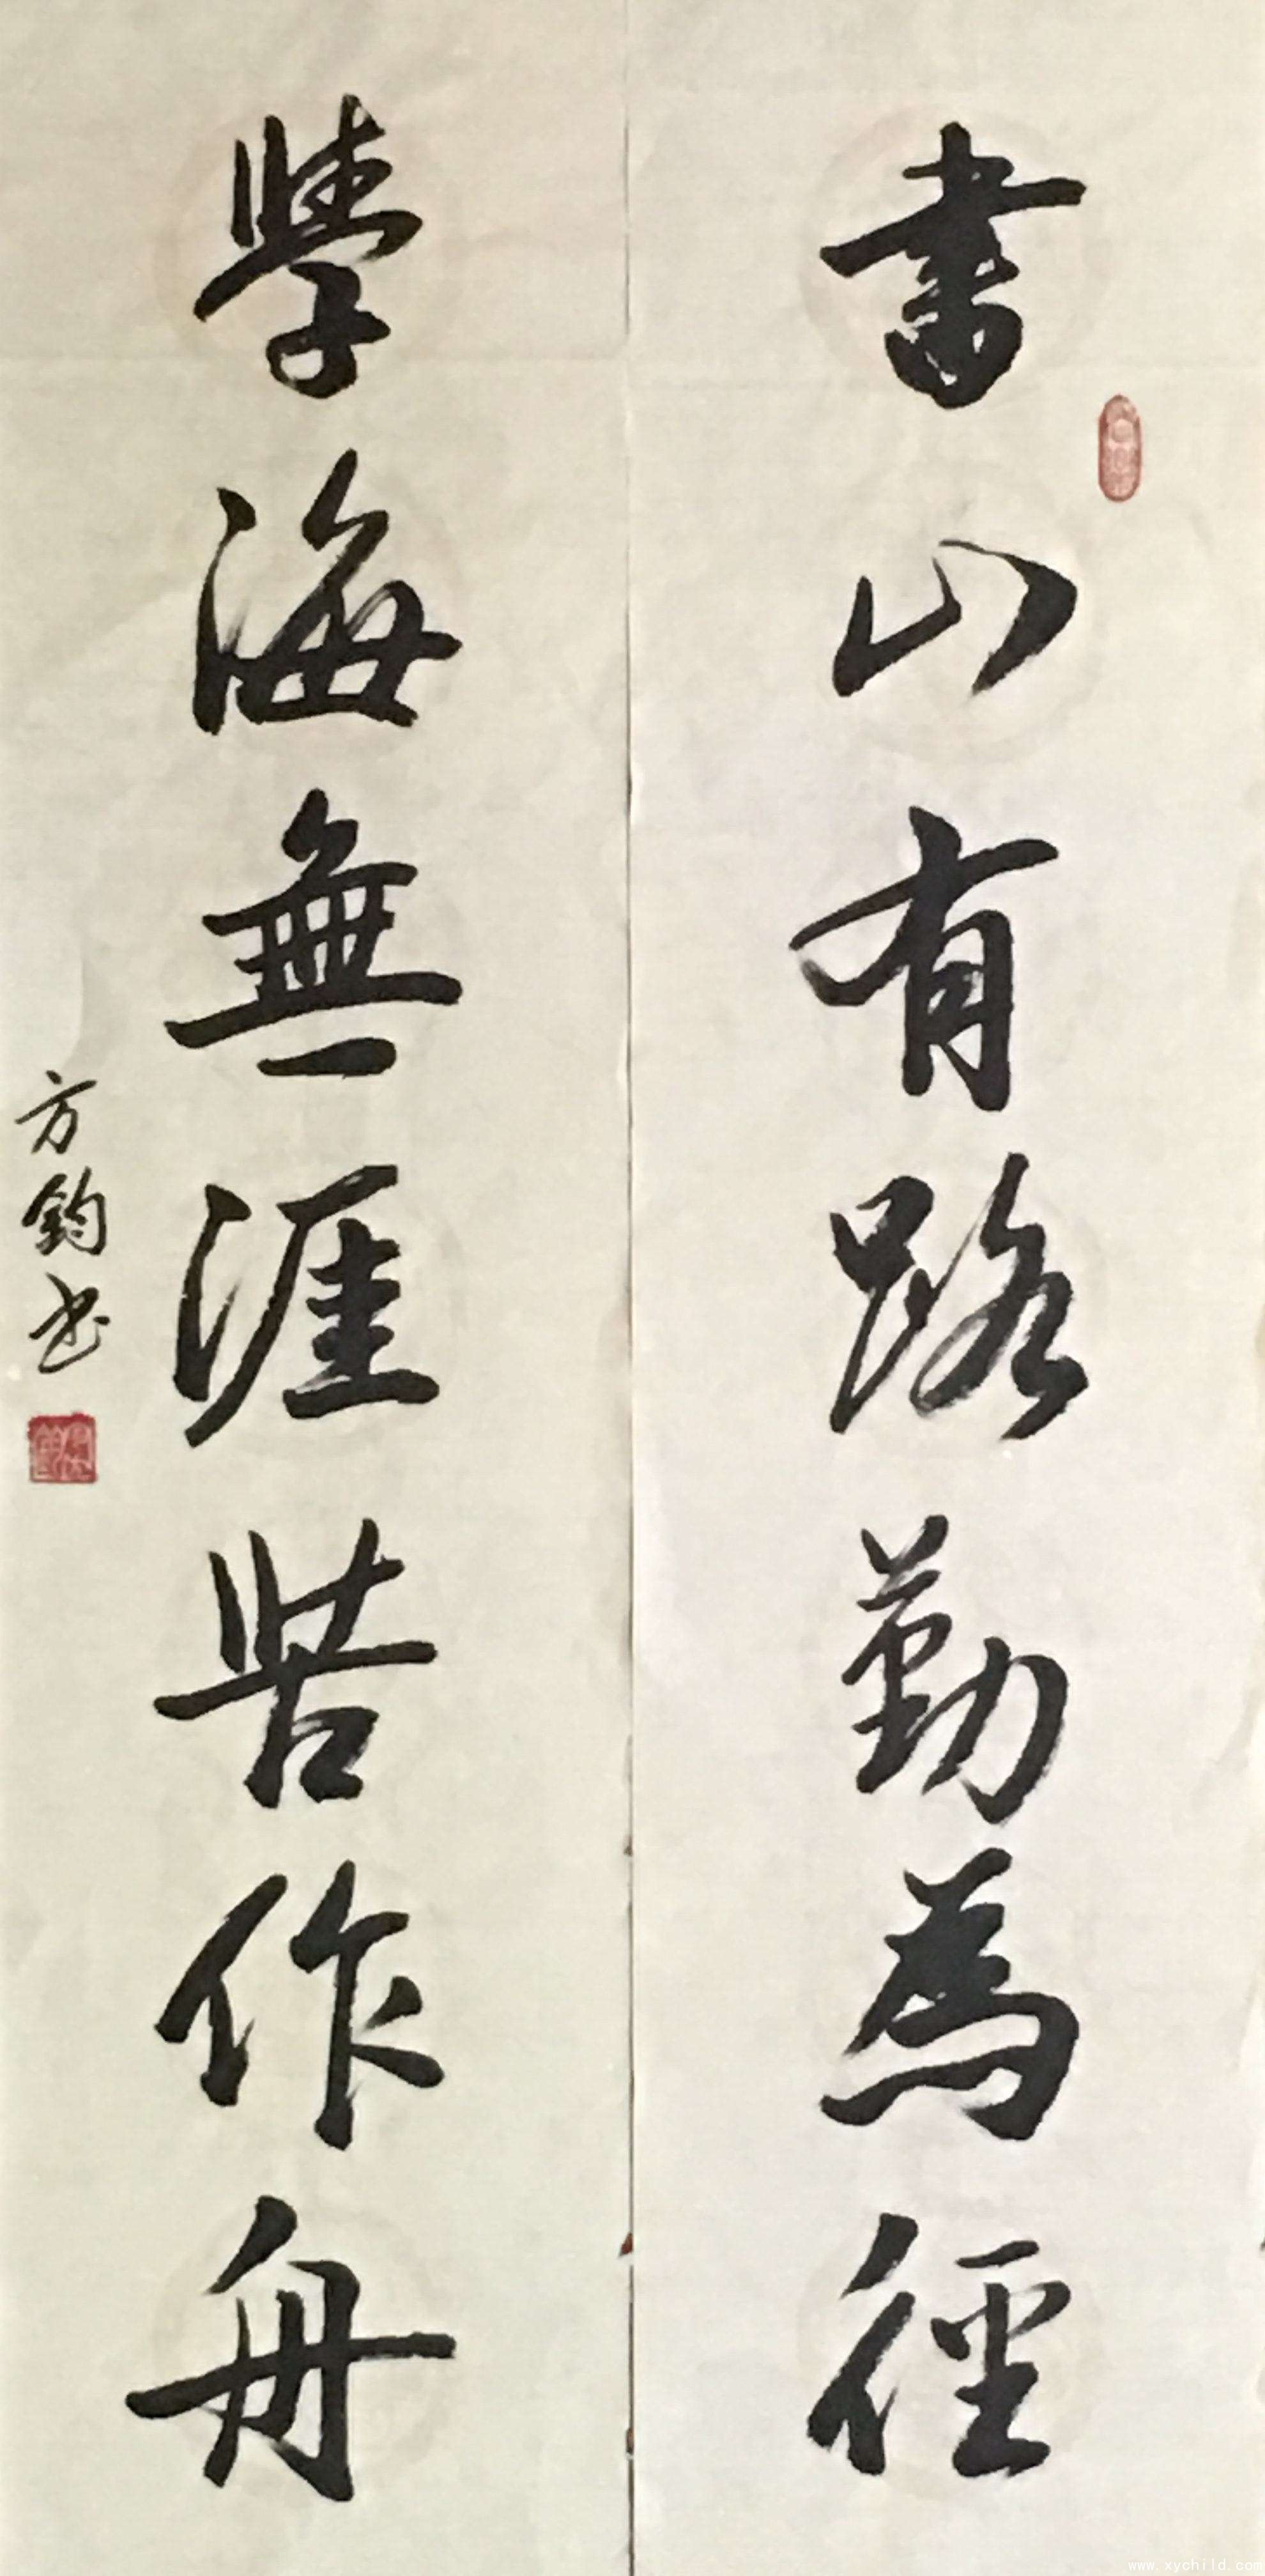 書山有路勤為徑
學海無涯苦作舟
方鈞书
www.xychild.com